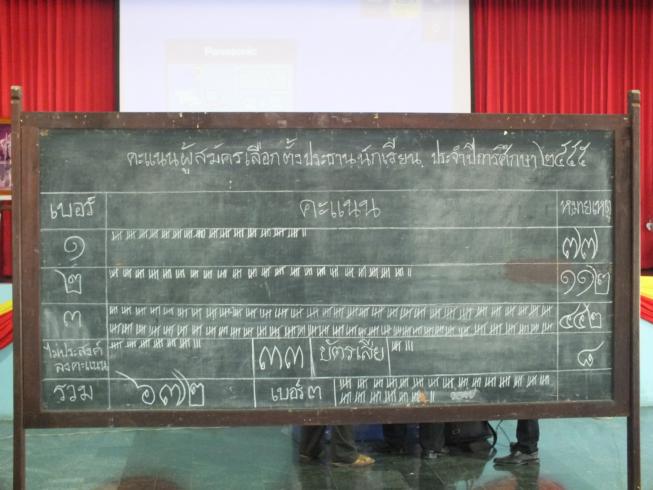 Panasonic
คะแนนผู้สมัครเลือกตั้งประธานนักเรียน ประจำปีการศึกษา ๒๕๕๕
เบอร์ คะแนน หมายเหตุ
๑ ๗๗
๒ ๑๑๒
๓ ๔๔๒
ไม่ประสงค์ลงคะแนน ๓๓ บัตรเสีย ๘
รวม ๖๗๒ เบอร์ ๓